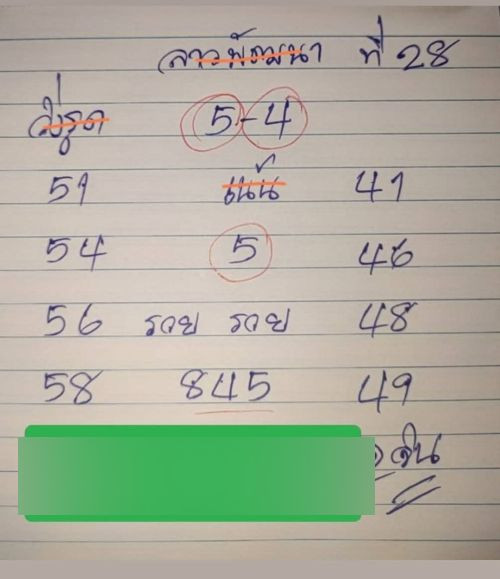 ลาวพัฒนา ที่ 28
วิ่งรูด 5-4
51 เน้น 41
54 5 46
56 รวย รวย 48
58 845 49